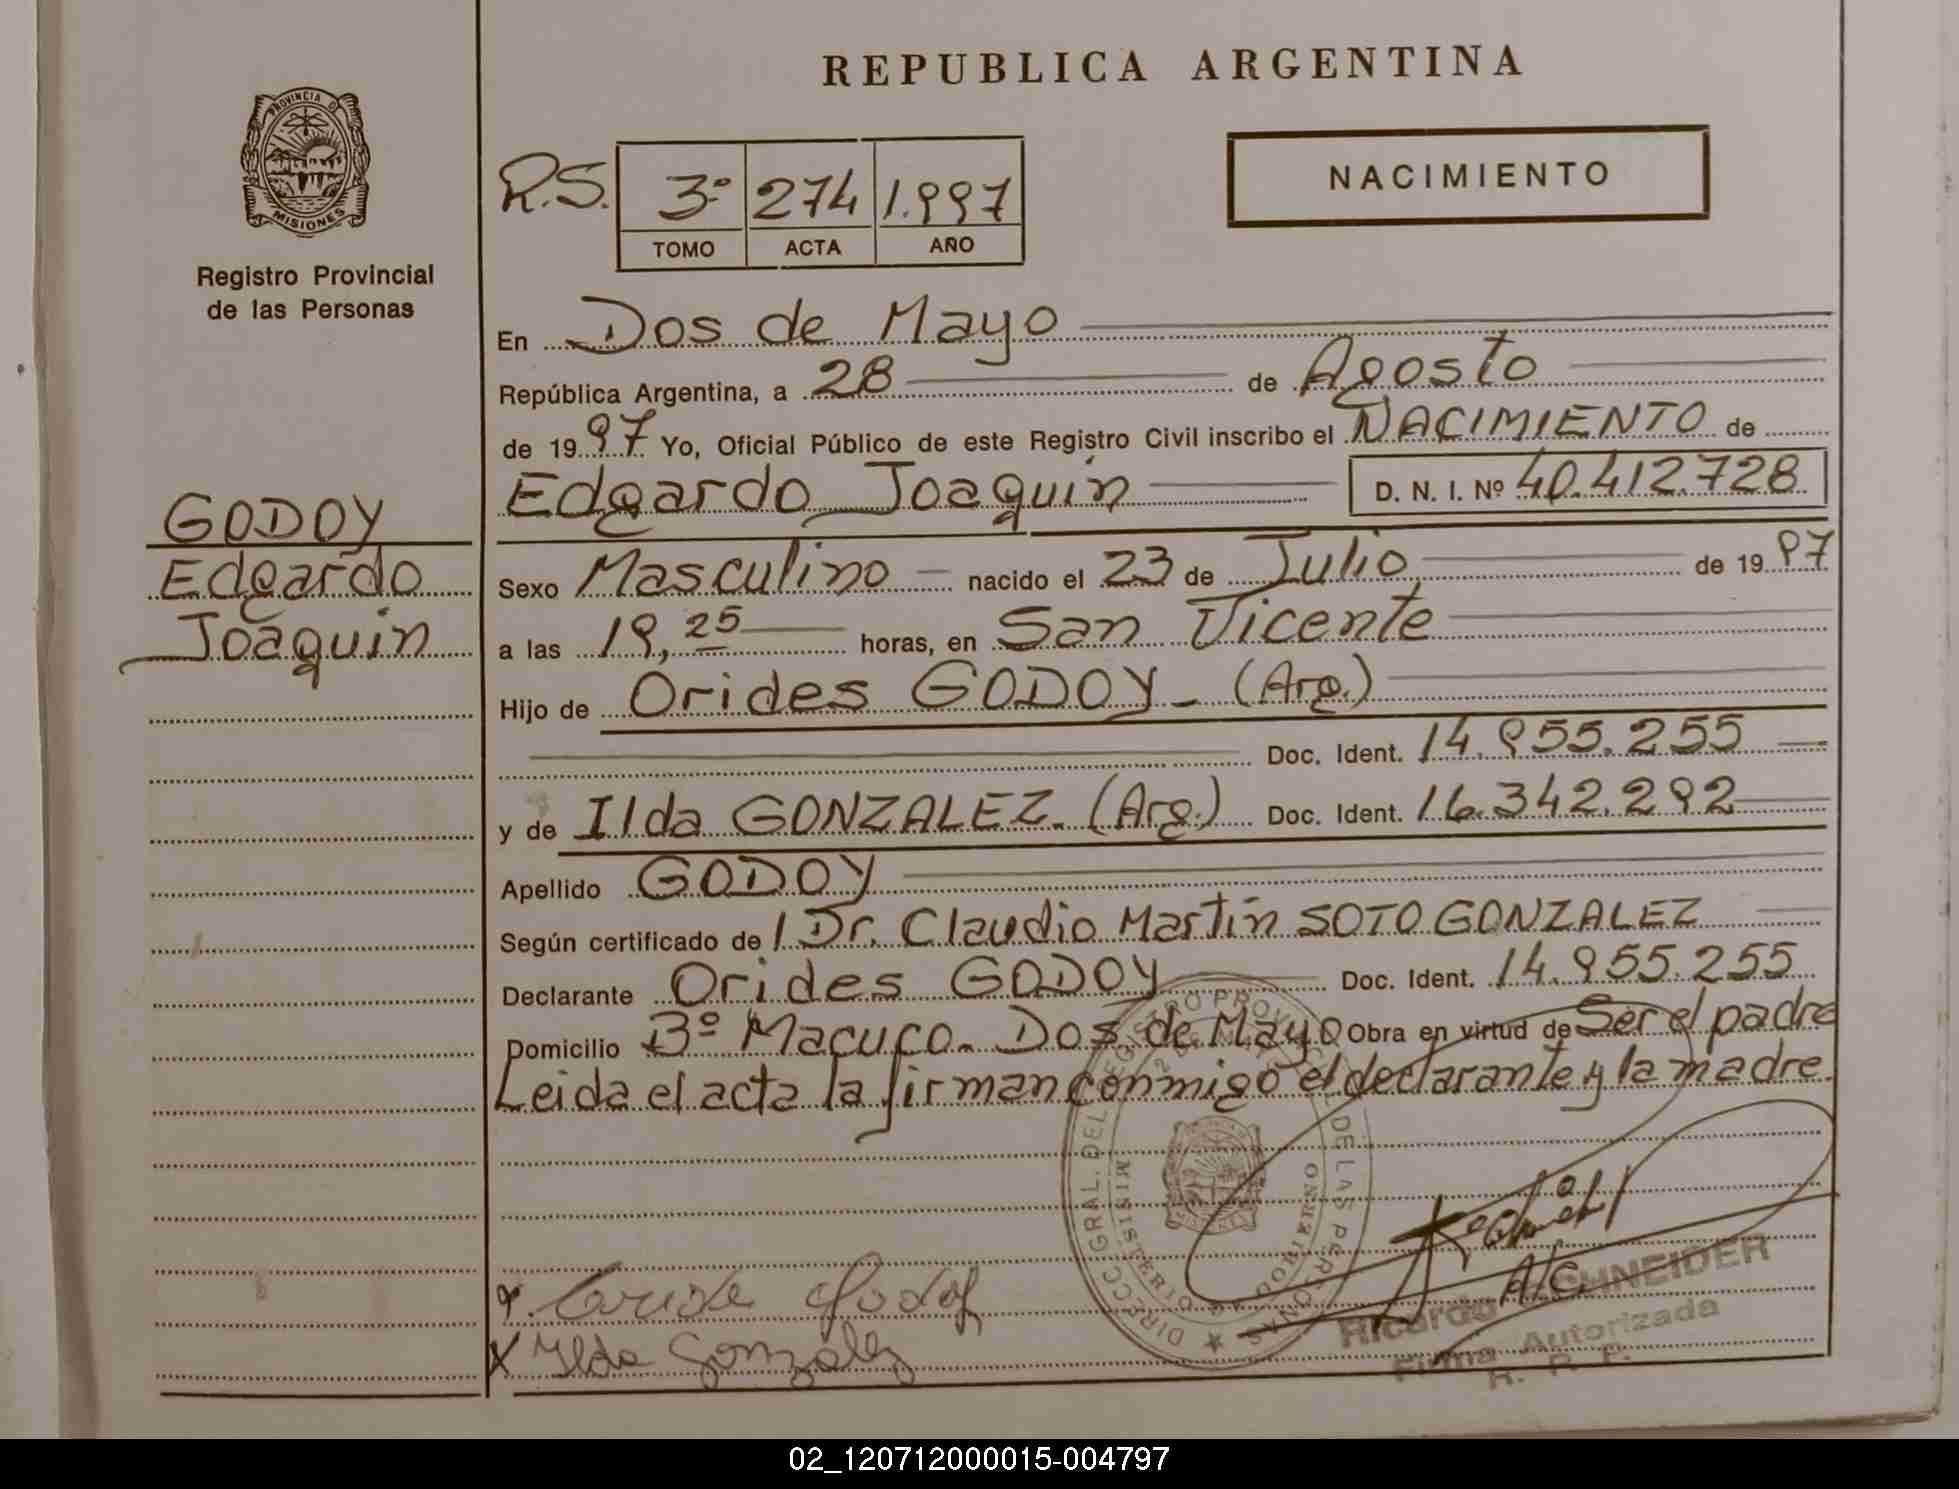 REPUBLICA ARGENTINA
PROVINCIA D
MISIONES
Registro Provincial
de las Personas
R.S. 3º 274 1.997
TOMO ACTA AÑO
NACIMIENTO
En Dos de Mayo
República Argentina, a 28 de Agosto
de 1997 Yo, Oficial Público de este Registro Civil inscribo el NACIMIENTO de
Edgardo Joaquín D. N. I. Nº 40.412.728
GODOY
Edgardo
Joaquín
Sexo Masculino nacido el 23 de Julio de 1997
a las 19,25 horas, en San Vicente
Hijo de Orides GODOY - (Arg.)
Doc. Ident. 14.955.255
y de Ilda GONZALEZ. (Arg.) Doc. Ident. 16.342.292
Apellido GODOY
Según certificado de l Dr. Claudio Martín SOTO GONZALEZ
Declarante Orides GODOY Doc. Ident. 14.955.255
Domicilio Bº Macuco. Dos de Mayo Obra en virtud de Ser el padre
Leida el acta la firman conmigo el declarante y la madre.
DIRECC GRAL. DEL REGISTRO PROVINCIAL DE LAS PERSONAS
MINISTERIO DE GOBIERNO
x Oride Godoy
x Ilda Gonzalez
A/C.
Ricardo SCHNEIDER
Firma Autorizada
R. P. P.
02_120712000015-004797